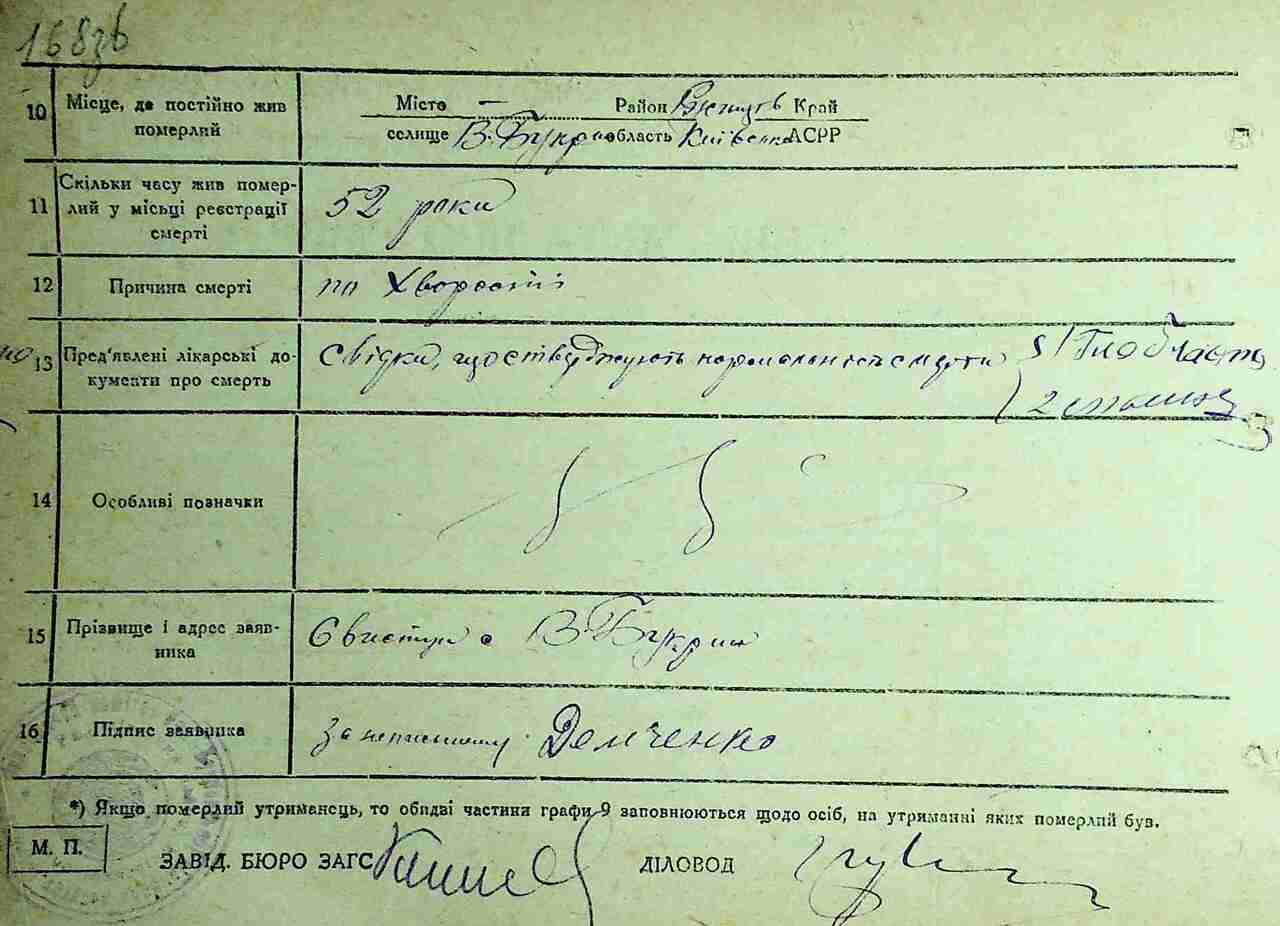 168зв
10 Місце, де постійно жив померлий
Місто — Район Ржищів Край
селище В. Букрин область Київська АСРР
11 Скільки часу жив померлий у місьці реєстрації смерті
52 роки
12 Причина смерті
по Хворости
13 Пред'явлені лікарські документи про смерть
Свідки, що стверджують нормальность смерти
14 Особливі позначки
15 Прізвище і адрес заявника
с В. Букрин
16 Підпис заявника
за неписьмену Демченко
*) Якщо померлий утриманець, то обидві частини графи 9 заповнюються щодо осіб, на утриманні яких померлий був.
М. П.
ЗАВІД. БЮРО ЗАГС
ДІЛОВОД